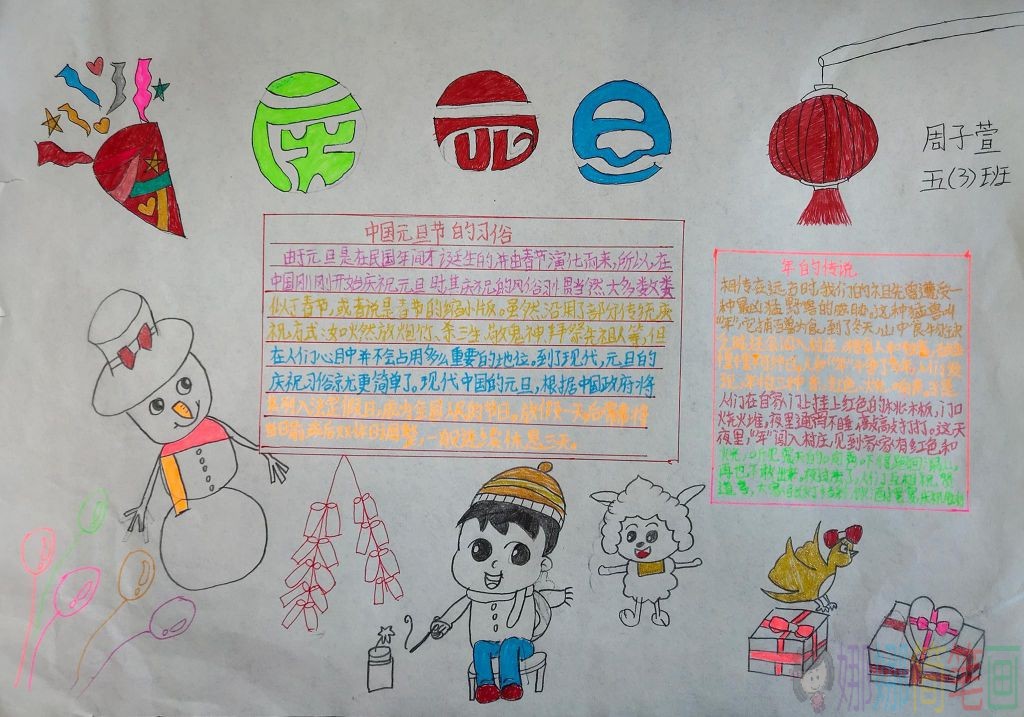 庆元旦
周子萱
五(3)班
中国元旦节的习俗
由于元旦是在民国年间才诞生的,并由春节演化而来,所以,在
中国刚刚开始庆祝元旦时,其庆祝的风俗习惯当然大多数类
似于春节,或者说是春节的缩小版。虽然沿用了部分传统庆
祝方式,如燃放炮竹、杀三生、敬鬼神、拜祭先祖人等,但
在人们心目中并不会占用多么重要的地位。到了现代,元旦的
庆祝习俗就更简单了。现代中国的元旦,根据中国政府将
其列入法定假日,成为全国人民的节日。放假一天后常常
日前或后双休日调整,一般连续休息三天。
年的传说
相传在远古时,我们的祖先曾遭受一
种最凶猛野兽的威胁。这种猛兽叫
“年”,它捕百兽为食,到了冬天,山中食
人们在自家门上挂上红色的桃木板,门口
烧火堆,夜里通宵不睡,敲敲打打。这天
夜里,“年”闯入村庄,见到家家有红色和
娜娜简笔画